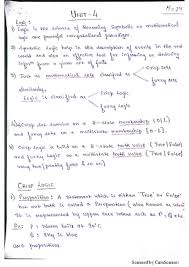 UNIT-4
M-24
Logic :
1) Logic is the science of Reasoning Symbolic or mathematical
logic as powerful computational paradigm.
2) Symbolic Logic help in the description of events in the real
world and also an effective tool for inferring or deducing
input from a given set of facts
3) Just as mathematical sets classified as crisp sets
fuzzy sets
Similarly,
Logic is classified as crisp Logic
fuzzy Logic
4) Crisp set survive on a 2-state membership [0-1]
and fuzzy sets on a multistate membership [0-1].
5) Crisp logic is built on a 2-state truth value [True/False]
and fuzzy logic on a multistate truth value (True/
False/very True/partly false and so on.)
CRISP LOGIC
1) Proposition : A statement which is either 'True' or 'False'
but not both is called a proposition
It is represented by upper case letters such as P, Q, R etc
Ex: P : Water boils at 90°C
S : Sky is blue
are propositions.
Scanned by Camscanner